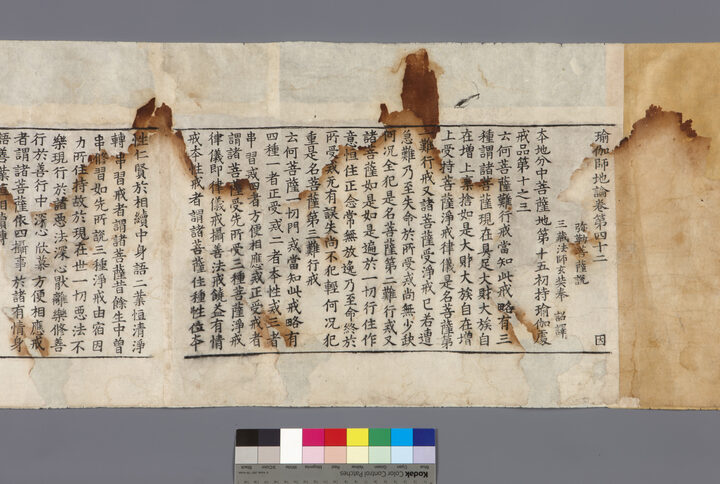 瑜伽師地論卷第四十二 因
弥勒菩薩說
三藏法師玄奘奉 詔譯
本地分中菩薩地第十五初持瑜伽處
戒品第十之三
云何菩薩難行戒當知此戒略有三
種謂諸菩薩現在具足大財大族自
在增上棄捨如是大財大族自在增
上受持菩薩淨戒律儀是名菩薩第
一難行戒又諸菩薩受淨戒已若遭
急難乃至失命於所受戒尚無少缺
何況全犯是名菩薩第二難行戒又
諸菩薩如是如是遍於一切行住作
意恒住正念常無放逸乃至命終於
所受戒无有誤失尚不犯輕何況犯
重是名菩薩第三難行戒
云何菩薩一切門戒當知此戒略有
四種一者正受戒二者本性戒三者
串習戒四者方便相應戒正受戒者
謂諸菩薩受先所受三種菩薩淨戒
律儀即律儀戒攝善法戒饒益有情
戒本性戒者謂諸菩薩住種性位本
性仁賢於相續中身語二業恒清淨
轉串習戒者謂諸菩薩昔餘生中曾
串修習如先所說三種淨戒由宿因
力所住持故於現在世一切惡法不
樂現行於諸惡法深心厭離樂修善
行於善行中深心欣慕方便相應戒
者謂諸菩薩依四攝事於諸有情身
語善業相續轉
Kodak Color Control Patches
Blue Cyan Green Yellow Red Magenta White 3/Color Black